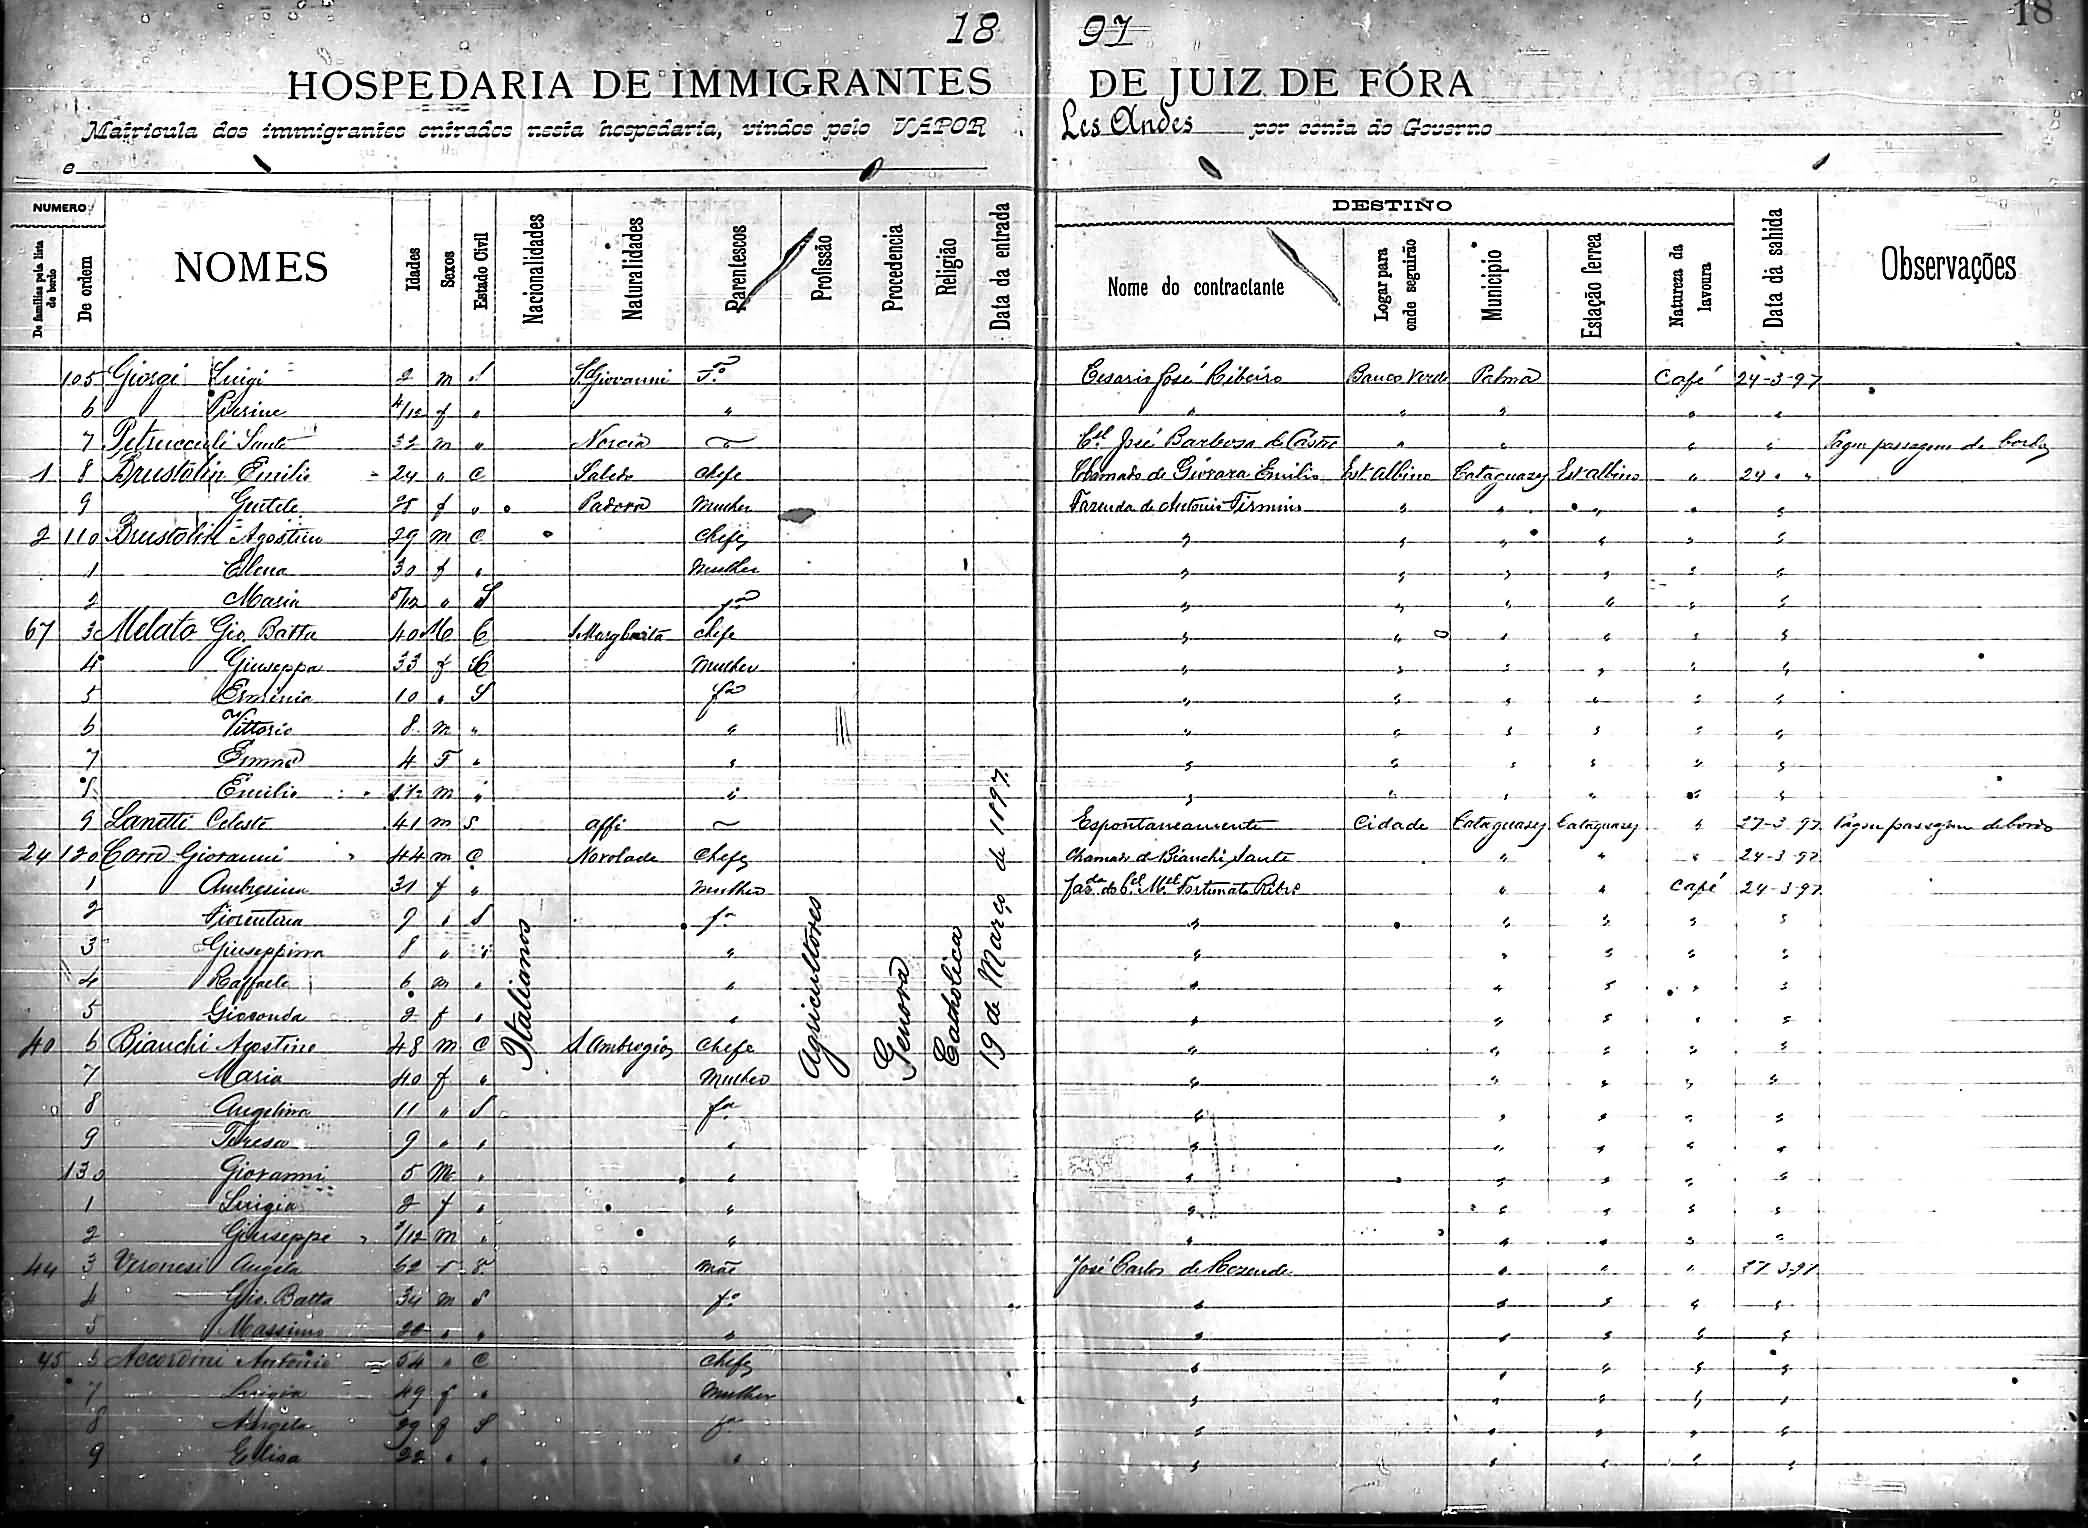 18 97
18
HOSPEDARIA DE IMMIGRANTES DE JUIZ DE FÓRA
Matricula dos immigrantes entrados nesta hospedaria, vindos pelo VAPOR Les Andes por conta do Governo
e
NUMERO DESTINO
De familias pela lista de bordo De ordem NOMES Idades Sexos Estado Civil Nacionalidades Naturalidades Parentescos Profissão Procedencia Religião Data da entrada Nome do contractante Logar para onde seguirão Municipio Estação ferrea Natureza da lavoura Data da sahida Observações
105 Giorgi Luigi 2 m S S Giovanni Fº Cesario José Ribeiro Banco Verde Palma Café 24-3-97
6 4/12 f " " " " " " "
7 Sante 32 m " Norcia Cel José Barbosa de Castro " " " " Pagou passagem de bordo
1 8 Brustolin Emilio 24 " C Chefe Chamado de Emilio Est Albino Cataguazes Est Albino " 24 " "
9 f " Padova Mulher Fazenda de Antonio Firmino " " " " "
2 110 Brustolin Agostino 29 m C Chefe " " " " " "
1 Elena 30 f " Mulher " " " " " "
2 Maria 5/12 " S fª " " " " " "
67 3 Melato Gio. Batta 40 M C S Margherita Chefe " " " " " "
4 Giuseppa 33 f C Mulher " " " " " "
5 Erminia 10 " S fª " " " " " "
6 Vittorio 8 m " " " " " " " "
7 Emma 4 F " " " " " " " "
8 Emilio m " " " " " " " "
9 Celeste 41 m S Affi Espontaneamente Cidade Cataguazes Cataguazes " 27-3-97 Pagou passagem de bordo
24 120 Giovanni 44 m C Chefe Chamado de Bianchi Sante " " " 24-3-97
1 31 f " Mulher fazda do Cel Mel Fortunato " " Café 24-3-97
2 Fiorentina 9 " S fª " " " " "
3 Giuseppina 8 " " " " " " " "
4 Raffaele 6 m " " " " " " "
5 2 f " " " " " " "
40 6 Bianchi Agostino 48 m C S Ambrogio Chefe " " " " "
7 Maria 40 f " Mulher " " " " "
8 Angelina 11 " S fª " " " " "
9 Teresa 9 " " " " " " " "
130 Giovanni 5 M " " " " " " "
1 Luigia 2 f " " " " " " "
2 Giuseppe m " " " " " " "
44 3 Veronesi Angela 62 f Mãe José Carlos de Rezende " " " 27-3-97
4 Gio. Batta 34 m S fº " " " " "
5 Massimo 20 " " " " " " " "
45 6 Accordini Antonio 54 " C Chefe " " " " "
7 Luigia 49 f " Mulher " " " " "
8 Angela 29 f S fª " " " " "
9 Elisa 22 " " " " " " " "
Italianos
Agricultores
Genova
Catholica
19 de Março de 1897